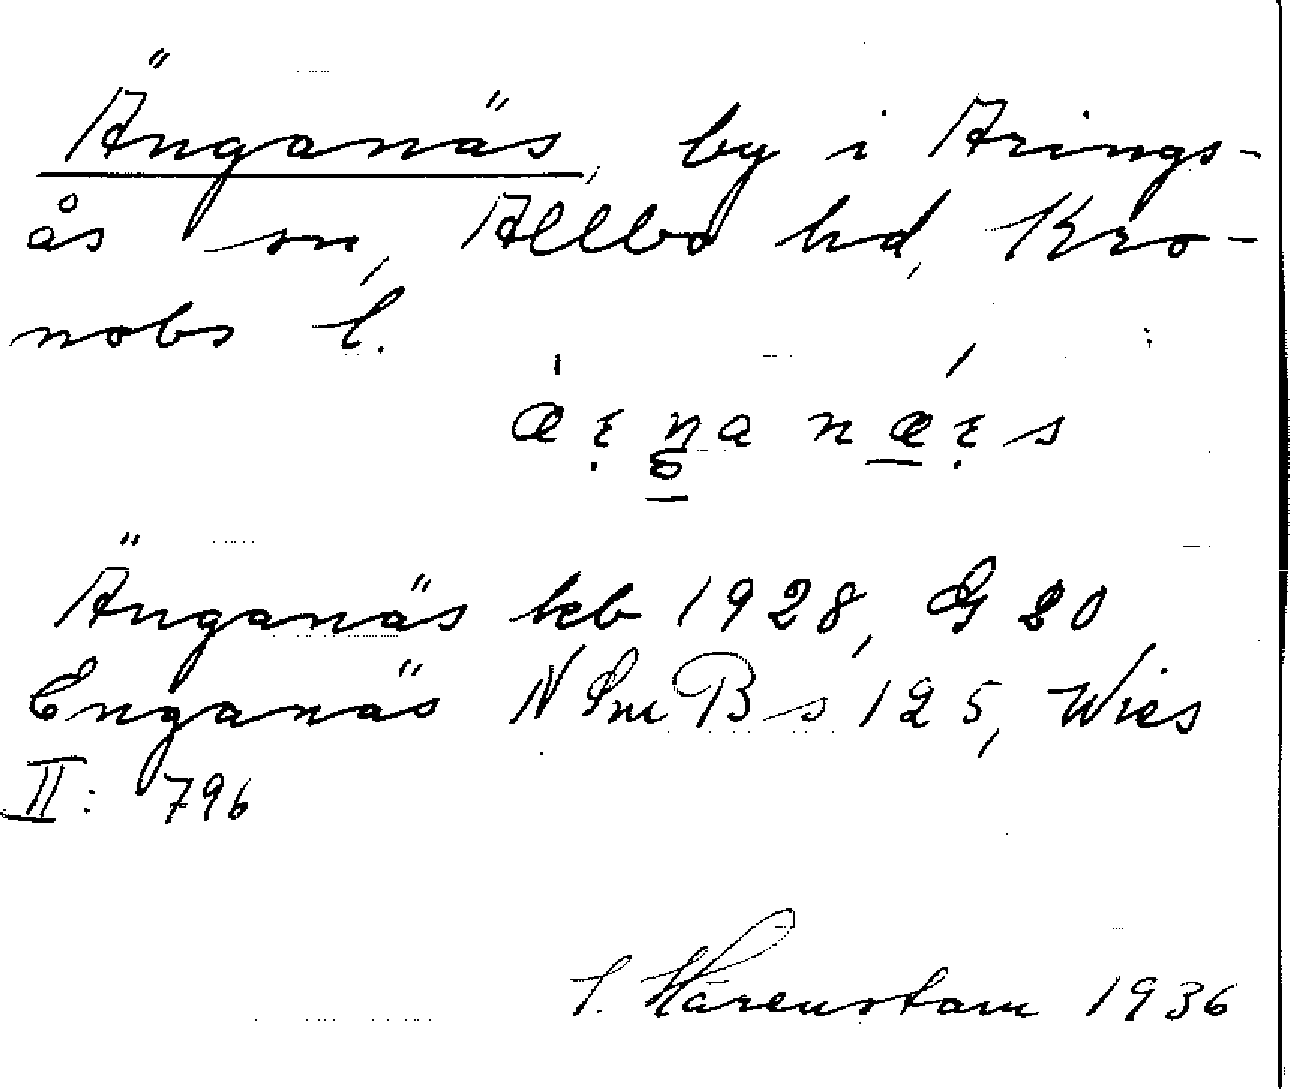 Änganäs, by i Arings-
ås sn, Allbo hd, Kro-
nobs l.
Änganäs kb 1928, G 20
Enganäs NSmB s 125, Wies
II: 796
S. Härenstam 1936